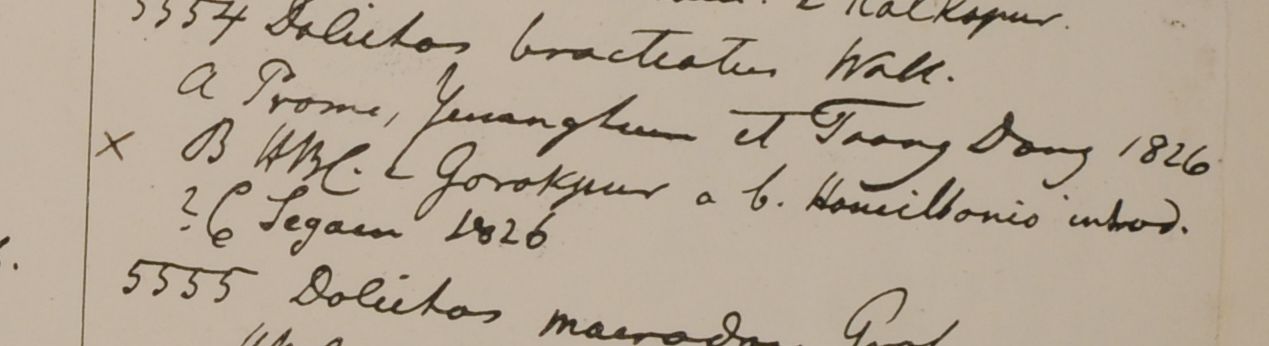 Kalkapur.
5554 Dolichos bracteatus Wall.
A Prome, Yenanghum et Taong Dong 1826
× B HBC. e Gorakpur a b. Hamiltonio introd.
? C Segaen 1826
5555 Dolichos